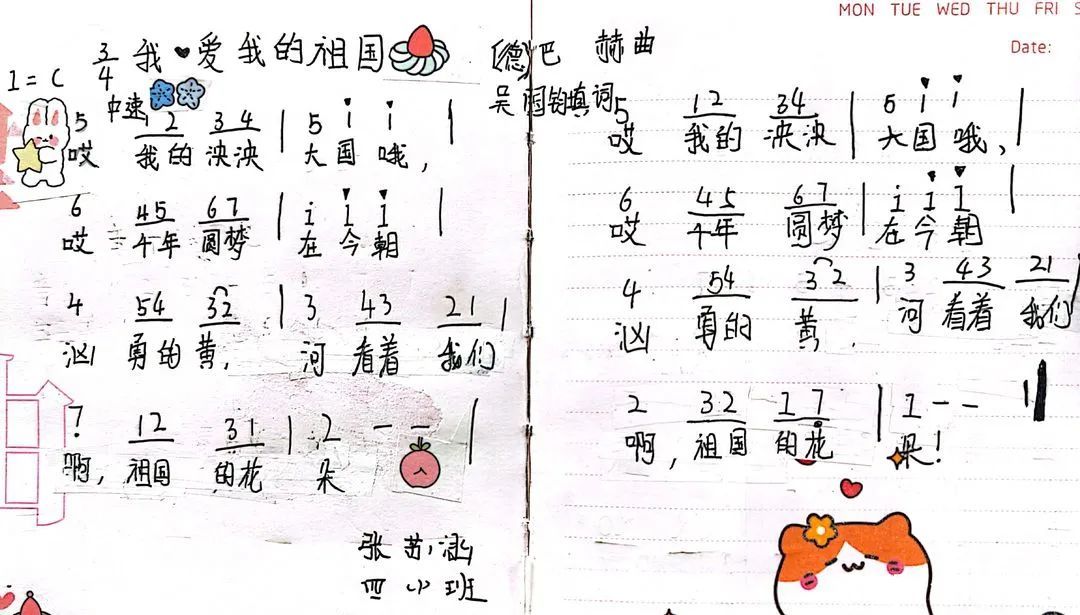 我♥爱我的祖国
1=C 3/4
中速
(德)巴 赫曲
吴国钧填词
5 12 34 | 5 i i |
哎 我的 泱泱 大国哦,
6 45 67 | i i i |
哎 千年 圆梦 在今朝
4 54 32 | 3 43 21 |
汹 勇的 黄, 河 看着 我们
7 12 31 | 2 — — |
啊, 祖国 的花 朵
张 涵
四(1)班
MON TUE WED THU FRI S
Date:
5 12 34 | 5 i i |
哎 我的 泱泱 大国哦,
6 45 67 | i i i |
哎 千年 圆梦 在今朝
4 54 32 | 3 43 21 |
汹 勇的 黄, 河 看着 我们
2 32 17 | 1 — — ‖
啊, 祖国 的花 朵!